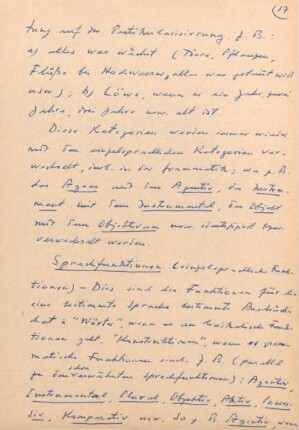 (17)
zug auf die Partikularisierung. z. B.:
a) alles was wächst (Tiere, Pflanzen,
Flüsse bei Hochwasser, alles was
usw.); b) Löwe, wenn es ein Jahr, zwei
Jahre, drei Jahre usw. alt ist
Diese Kategorien werden immer wieder
mit den einzelsprachlichen Kategorien ver-
wechselt, in der Grammatik; wo z. B.
das Agens mit dem Agentiv, das Instru-
ment mit dem Instrumental, das Objekt
mit dem Objektivum usw.
verwechselt werden.
Sprachfunktionen (einzelsprachliche Funk-
tionen) – Dies sind die Funktionen für die
eine bestimmte Sprache bestimmte Ausdrücke
hat: "Wörter", wenn es um lexikalische Funk-
tionen geht, "Konstruktionen", wenn es gram-
matische Funktionen sind. z. B. (parallel
zu den schon erwähnten Sprachfunktionen): Agentiv,
Instrumental, Plural, Objektiv, Aktiv,
Komparativ usw. So z. B. Agentiv, wenn